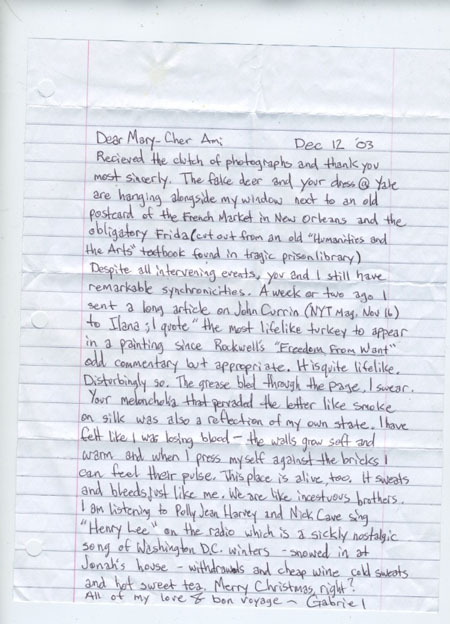 Dear Mary-Cher Ami Dec 12 '03
Recieved the clutch of photographs and thank you
most sincerly. The fake deer and your dress @ Yale
are hanging alongside my window next to an old
postcard of the French Market in New Orleans and the
obligatory Frida (cut out from an old "Humanities and
the Arts" textbook found in tragic prison library)
Despite all intervening events, you and I still have
remarkable synchronicities. A week or two ago I
sent a long article on John Currin (NYT Mag. Nov 16)
to Ilana; I quote "the most lifelike turkey to appear
in a painting since Rockwell's "Freedom From Want"
odd commentary but appropriate. It is quite lifelike.
Disturbingly so. The grease bled through the page, I swear.
Your meloncholia that pervaded the letter like smoke
on silk was also a reflection of my own state. I have
felt like I was losing blood - the walls grow soft and
warm and when I press myself against the bricks I
can feel their pulse. This place is alive too, it sweats
and bleeds just like me. We are like incestuous brothers.
I am listening to Polly Jean Harvey and Nick Cave sing
"Henry Lee" on the radio which is a sickly nostalgic
song of Washington D.C. winters - snowed in at
Jonah's house - withdrawals and cheap wine cold sweats
and hot sweet tea. Merry Christmas, right?
All of my love & bon voyage ~ Gabriel